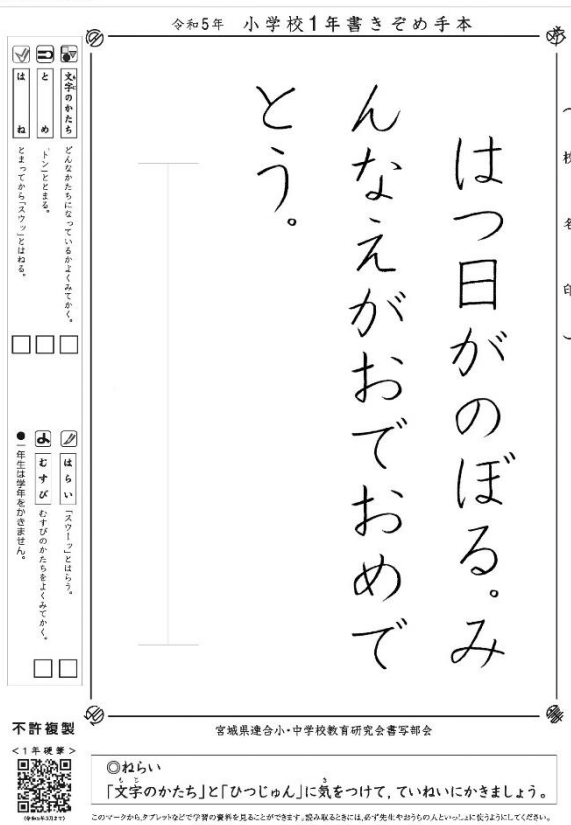 令和5年 小学校1年書きぞめ手本
(校名印)
はつ日がのぼる。み
んなえがおでおめで
とう。
文字のかたち どんなかたちになっているかよくみてかく。
とめ 「トン」ととまる。
はね とまってから「スウッ」とはねる。
はらい 「スウーッ」とはらう。
むすび むすびのかたちをよくみてかく。
●一年生は学年をかきません。
不許複製
<1年硬筆>
宮城県連合小・中学校教育研究会書写部会
◎ねらい
「文字のかたち」と「ひつじゅん」に気をつけて,ていねいにかきましょう。
このマークから,タブレットなどで学習の資料を見ることができます。読み取るときには,必ず先生やおうちの人といっしょに使うようにしてください。